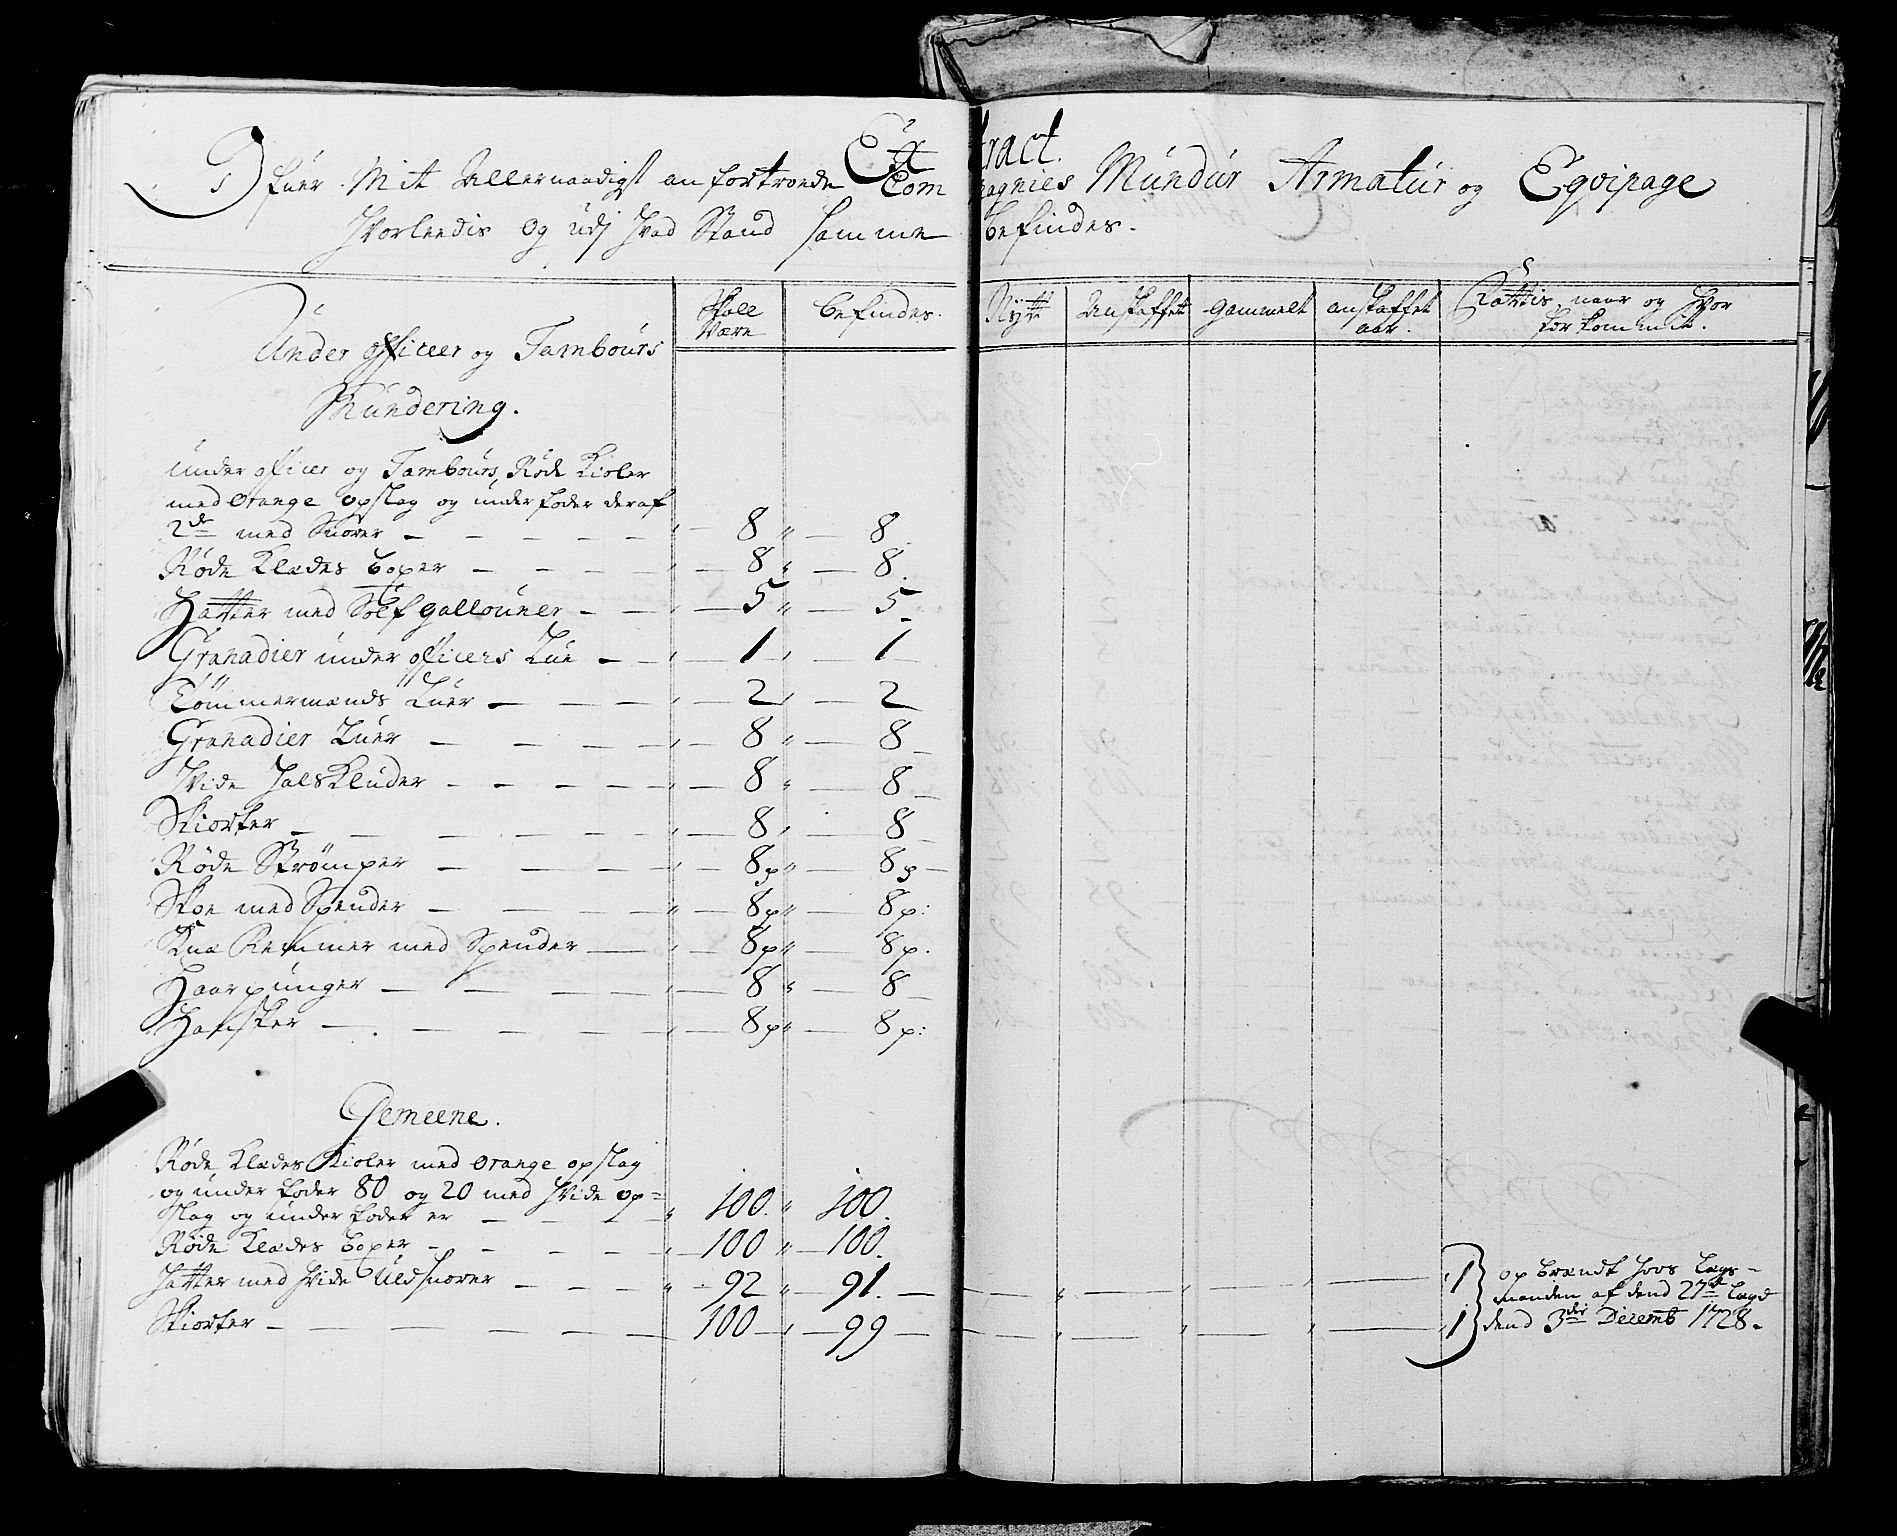 Extract.
Ofuer Mit Allernaadigst anfortroede Compagnies Mundur Armatur og Eqvipage
Hvorleedis og udj Hvad Stand samme befindes.
Skall Være
befindes.
Nytt
Anskaffet
gammelt
anskaffet aar.
Kattis, naar og Hvor
forkommit.
Under officeer og Tambours
Mundering.
under officer og Tambours, Røde Kioler
med orange opslag og under foder deraf
2de med Snorer — 8 — 8
Røde Klædes boxer — 8 — 8
Hatter med Sølf gallouner — 5 — 5
Granadier under officers Lue — 1 — 1
Tømmermands Luer — 2 — 2
Granadier Luer — 8 — 8
Hvide HalsKluder — 8 — 8
Skiorter — 8 — 8
Røde Strømper — 8p — 8p
Skoe med Spender — 8p — 8p:
Knæ Remmer med Spender — 8p — 8p.
Haarpunger — 8 — 8
Hansker — 8p — 8p:
Gemeene.
Røde Klædes Kioler med orange opslag
og under foder 80 og 20 med Hvide op=
slag og under foder er — 100 — 100.
Røde Klædes boxer — 100 — 100.
Hatter med Hvide Uldsnorer — 92 — 91. — 1
Skiorter — 100 — 99 — 1
opbrændt hoos Lægs-
manden af dend 27de Lægd
dend 3die Decemb 1728.